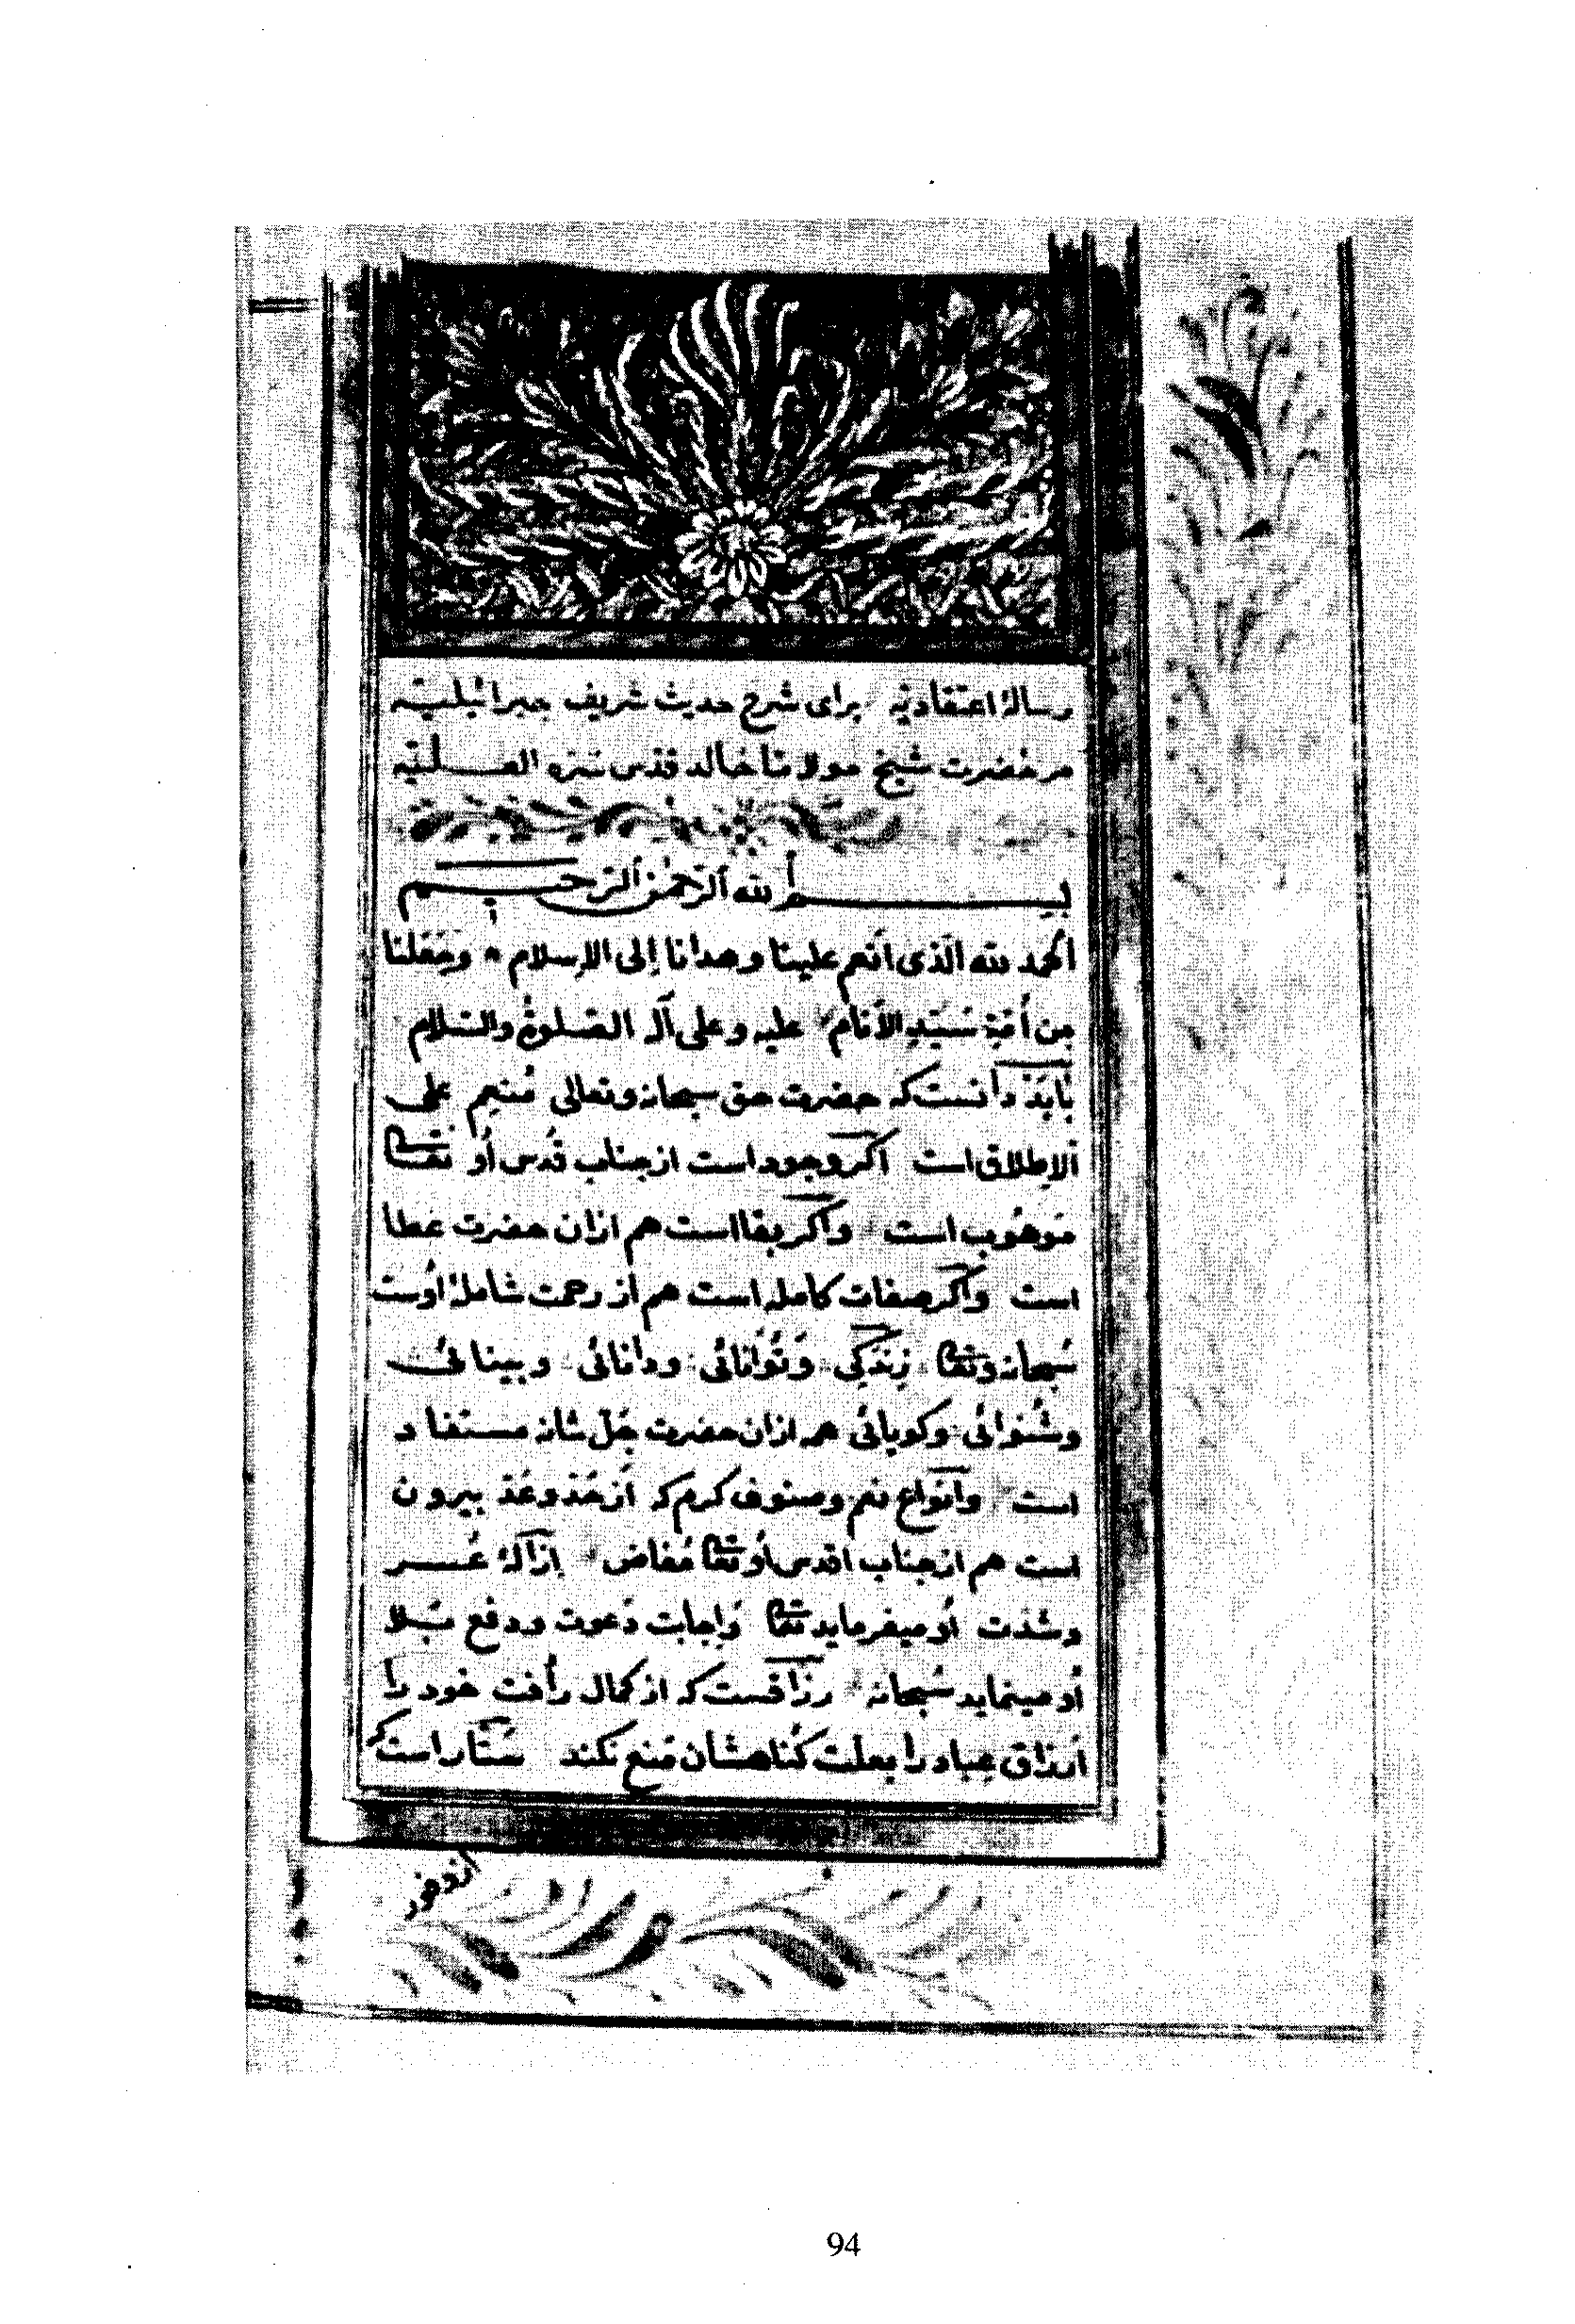 رسالۀ اعتقادیّه برای شرح حدیث شریف جبرائیلیّه
مر حضرت شیخ مولانا خالد قدّس سرّه العلیّه
بسم الله الرّحمٰن الرّحیم
الحمد لله الّذی أنعم علینا وهدانا إلی الإسلام وجعلنا
من أمّة سیّد الأنام علیه وعلی آله الصّلوة والسّلام
باید دانست که حضرت حق سبحانه وتعالی منعم علی
الاطلاق است اکر وجود است از جناب قدس او تعا
موهوب است واکر بقا است هم ازان حضرت عطا
است واکر صفات کامله است هم از رحمت شاملۀ اوست
سبحانه وتعا زندکی وتوانائی ودانائی وبینائی
وشنوائی وکویائی هم ازان حضرت جلّ شانه مستفاد
است وانواع نعم وصنوف کرم که از حد وعد بیرون
است هم از جناب اقدس او تعا مفاض ازالۀ عسر
وشدّت او میفرماید تعا واجابت دعوت ودفع بلا
او مینماید سبحانه رزاقست که از کمال رأفت خود را
ارزاق عباد را بعلت کناهشان منع نکند ستّار است که
94